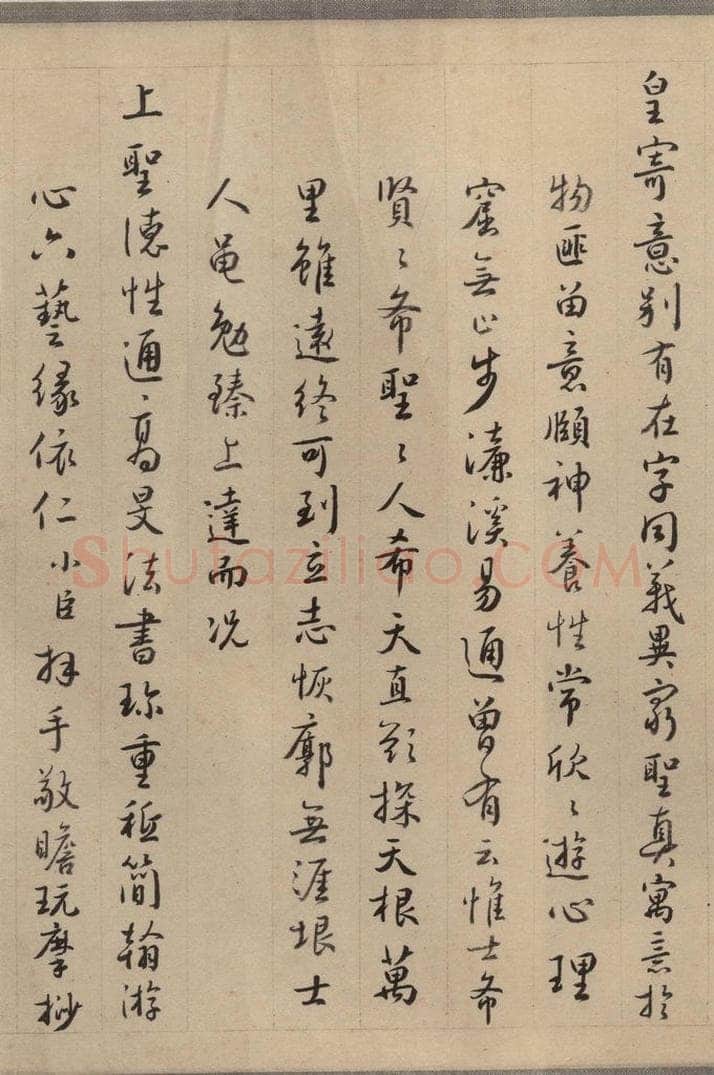 皇寄意别有在字同義異窮聖真寓意於
物匪留意頤神養性常欣〻遊心理
窟無止步濂溪易通曾有云惟士希
賢〻希聖〻人希天直欲探天根萬
里雖遠終可到立志恢廓無涯垠士
人黽勉臻上達而况
上聖德性通〻高旻法書珍重袛簡翰游
心六藝緣依仁小臣拜手敬瞻玩摩挱
Shufaziliao.COM